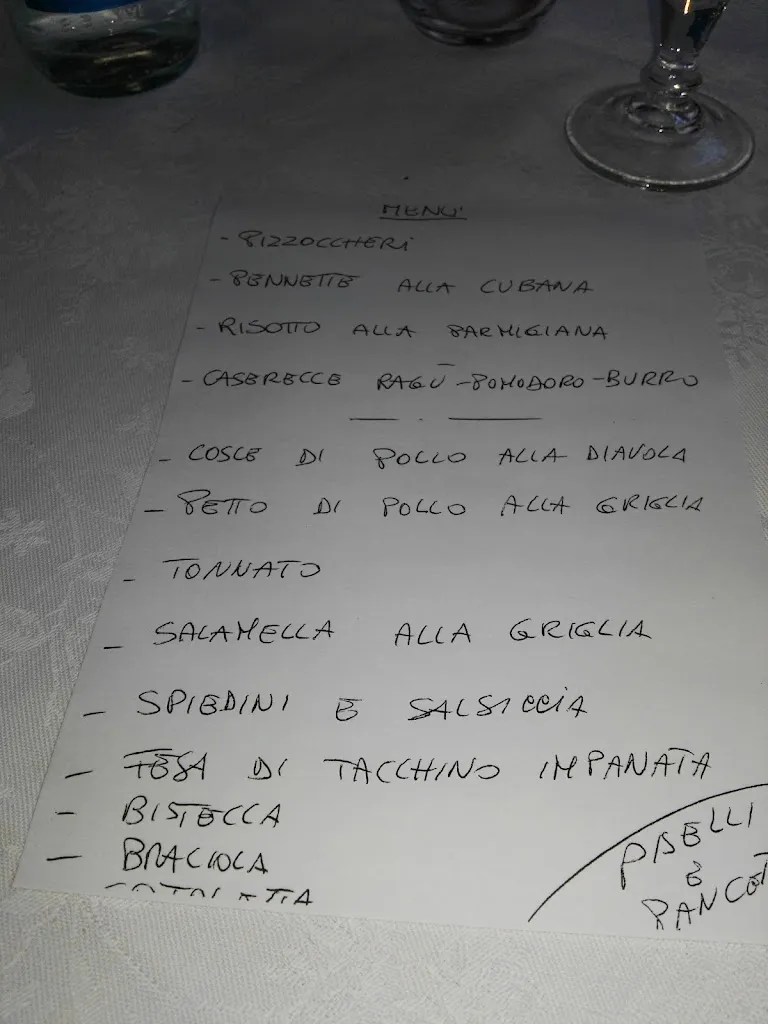 MENÙ
- PIZZOCCHERI
- PENNETTE ALLA CUBANA
- RISOTTO ALLA PARMIGIANA
- CASERECCE RAGÙ - POMODORO - BURRO
- COSCE DI POLLO ALLA DIAVOLA
- PETTO DI POLLO ALLA GRIGLIA
- TONNATO
- SALAMELLA ALLA GRIGLIA
- SPIEDINI E SALSICCIA
- FESA DI TACCHINO IMPANATA
- BISTECCA
- BRACIOLA
COTOLETTA
PISELLI
E
PANCET